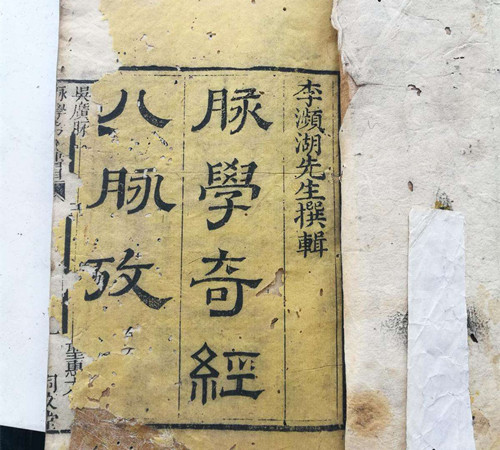 李瀕湖先生撰輯
脉學奇經
八脉攷